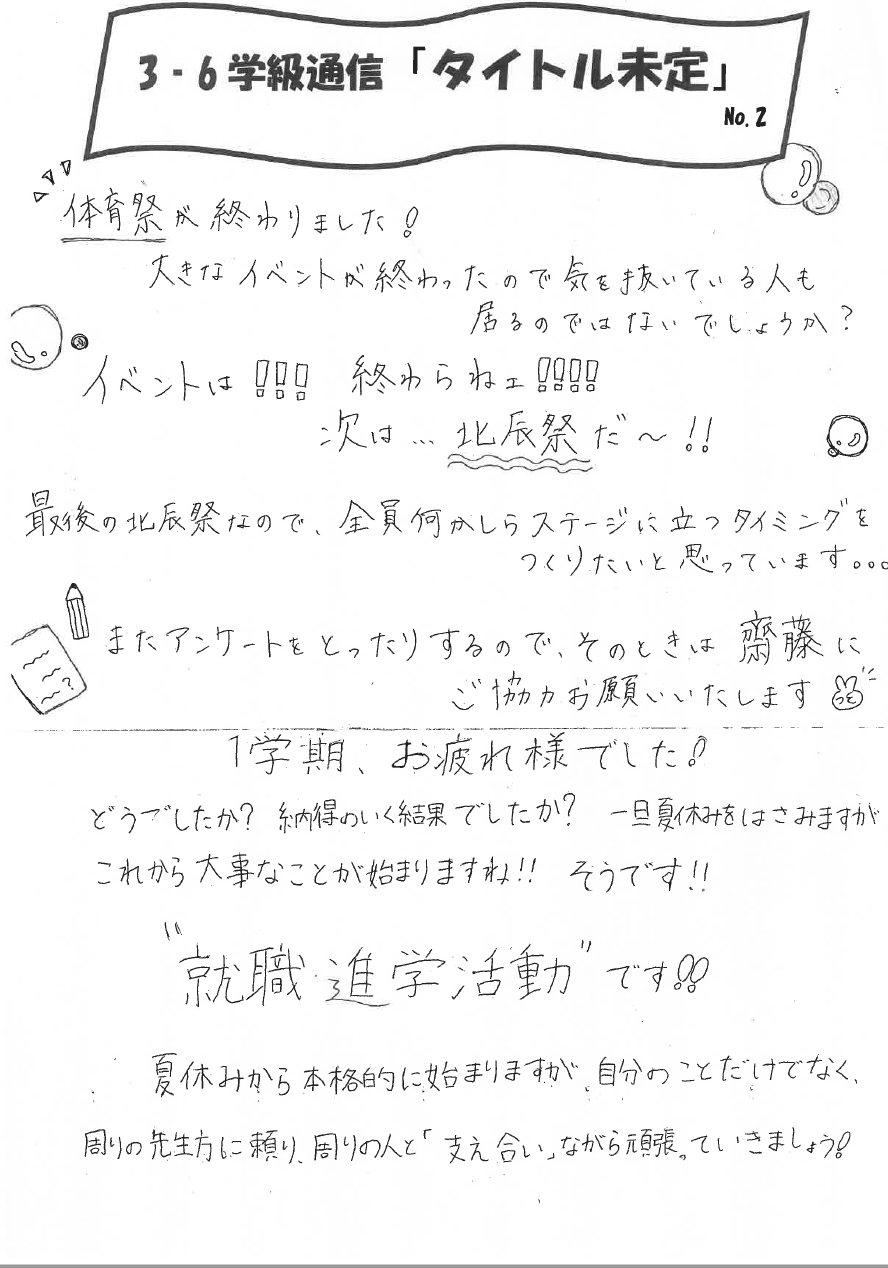 3-6学級通信「タイトル未定」
No.2
体育祭が終わりました!
大きなイベントが終わったので気を抜いている人も
居るのではないでしょうか?
イベントは!!! 終わらねェ!!!!
次は…北辰祭だ〜!!
最後の北辰祭なので、全員何かしらステージに立つタイミングを
つくりたいと思っています...
またアンケートをとったりするので、そのときは齋藤に
ご協力お願いいたします
1学期、お疲れ様でした!
どうでしたか? 納得のいく結果でしたか? 一旦夏休みをはさみますが
これから大事なことが始まりますね!! そうです!!
"就職・進学活動"です!!
夏休みから本格的に始まりますが、自分のことだけでなく、
周りの先生方に頼り、周りの人と「支え合い」ながら頑張っていきましょう!